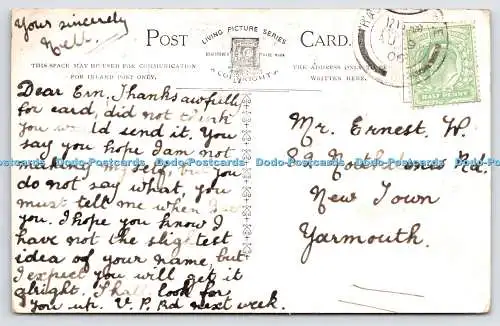 Yours sincerely
Nell.
POST CARD.
LIVING PICTURE SERIES
COPYRIGHT
THIS SPACE MAY BE USED FOR COMMUNICATION
FOR INLAND POST ONLY.
THE ADDRESS ONLY
WRITTEN HERE.
HALF PENNY
Dear Ern, Thanks awfully
for card, did not think
you would send it. You
say you hope I am not
making myself, but you
do not say what, you
must tell me when I
you. I hope you know I
have not the slightest
idea of your name, but
I expect you will get it
alright. I shall look for
you up. V. P. Rd next week.
Mr. Ernest. W.
Rd.
New Town
Yarmouth.
Dodo-Postcards Dodo-Postcards Dodo-Postcards Dodo-Postcards Dodo-Postcards